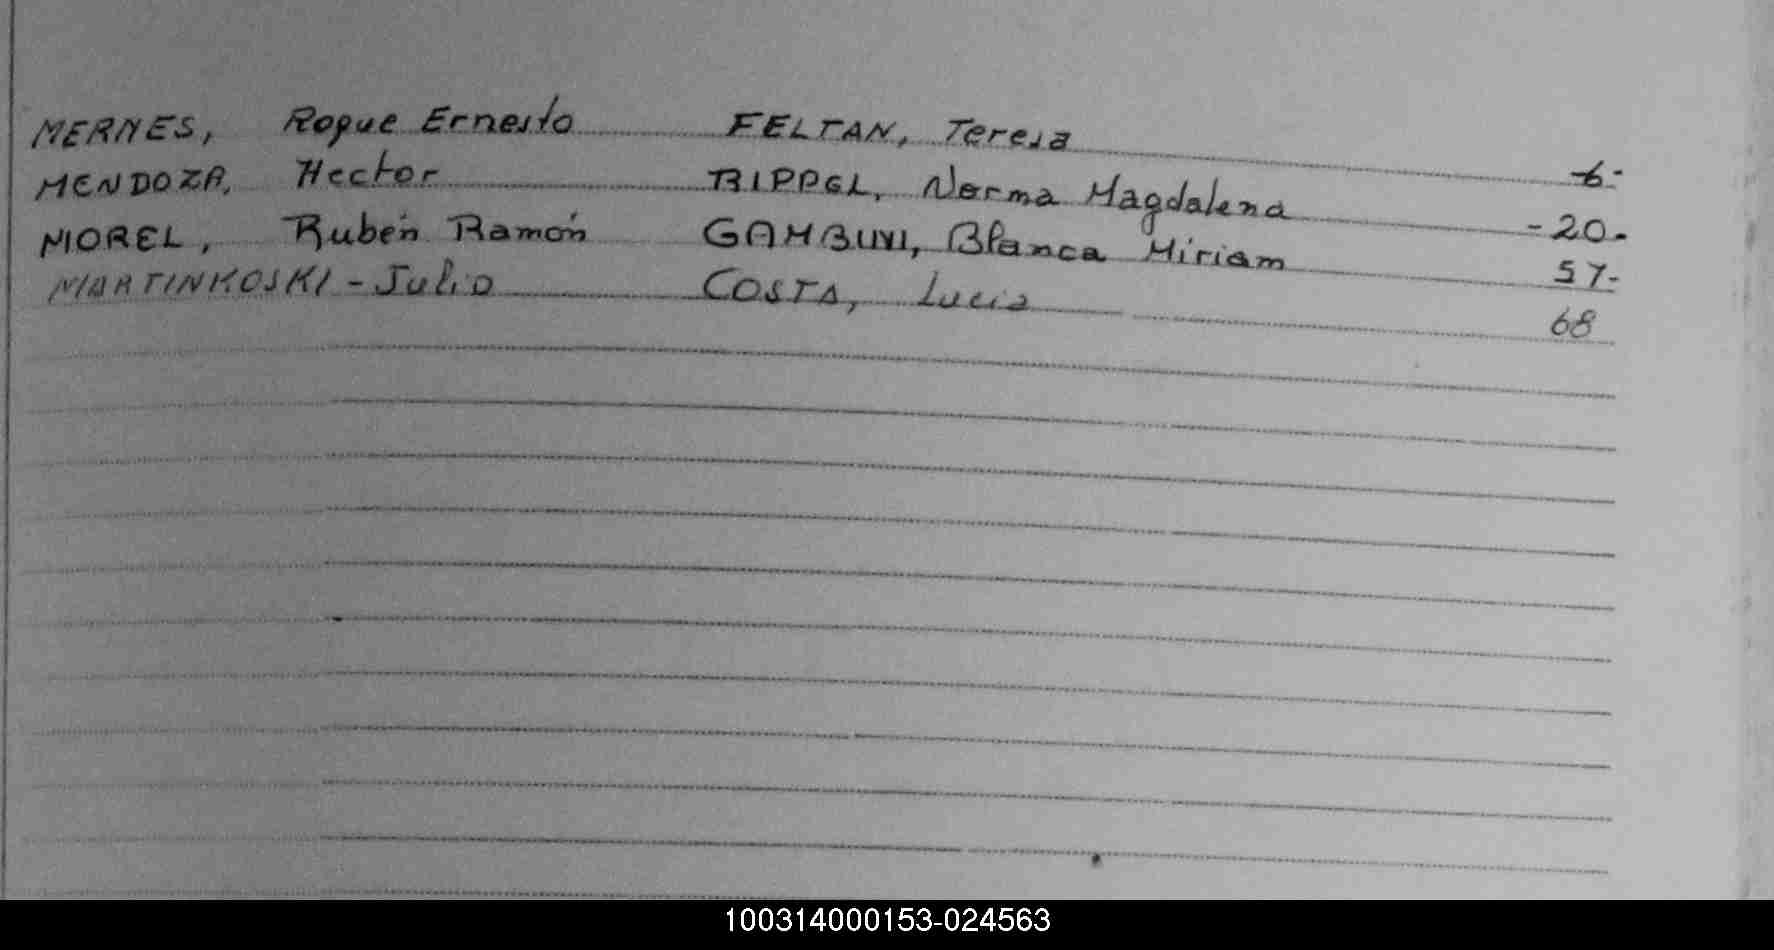 MERNES, Roque Ernesto FELTAN, Teresa 6-
MENDOZA, Hector RIPPEL, Norma Magdalena -20-
MOREL, Rubén Ramón GAMBINI, Blanca Miriam 57-
MARTINKOSKI - Julio COSTA, Lucia 68
100314000153-024563